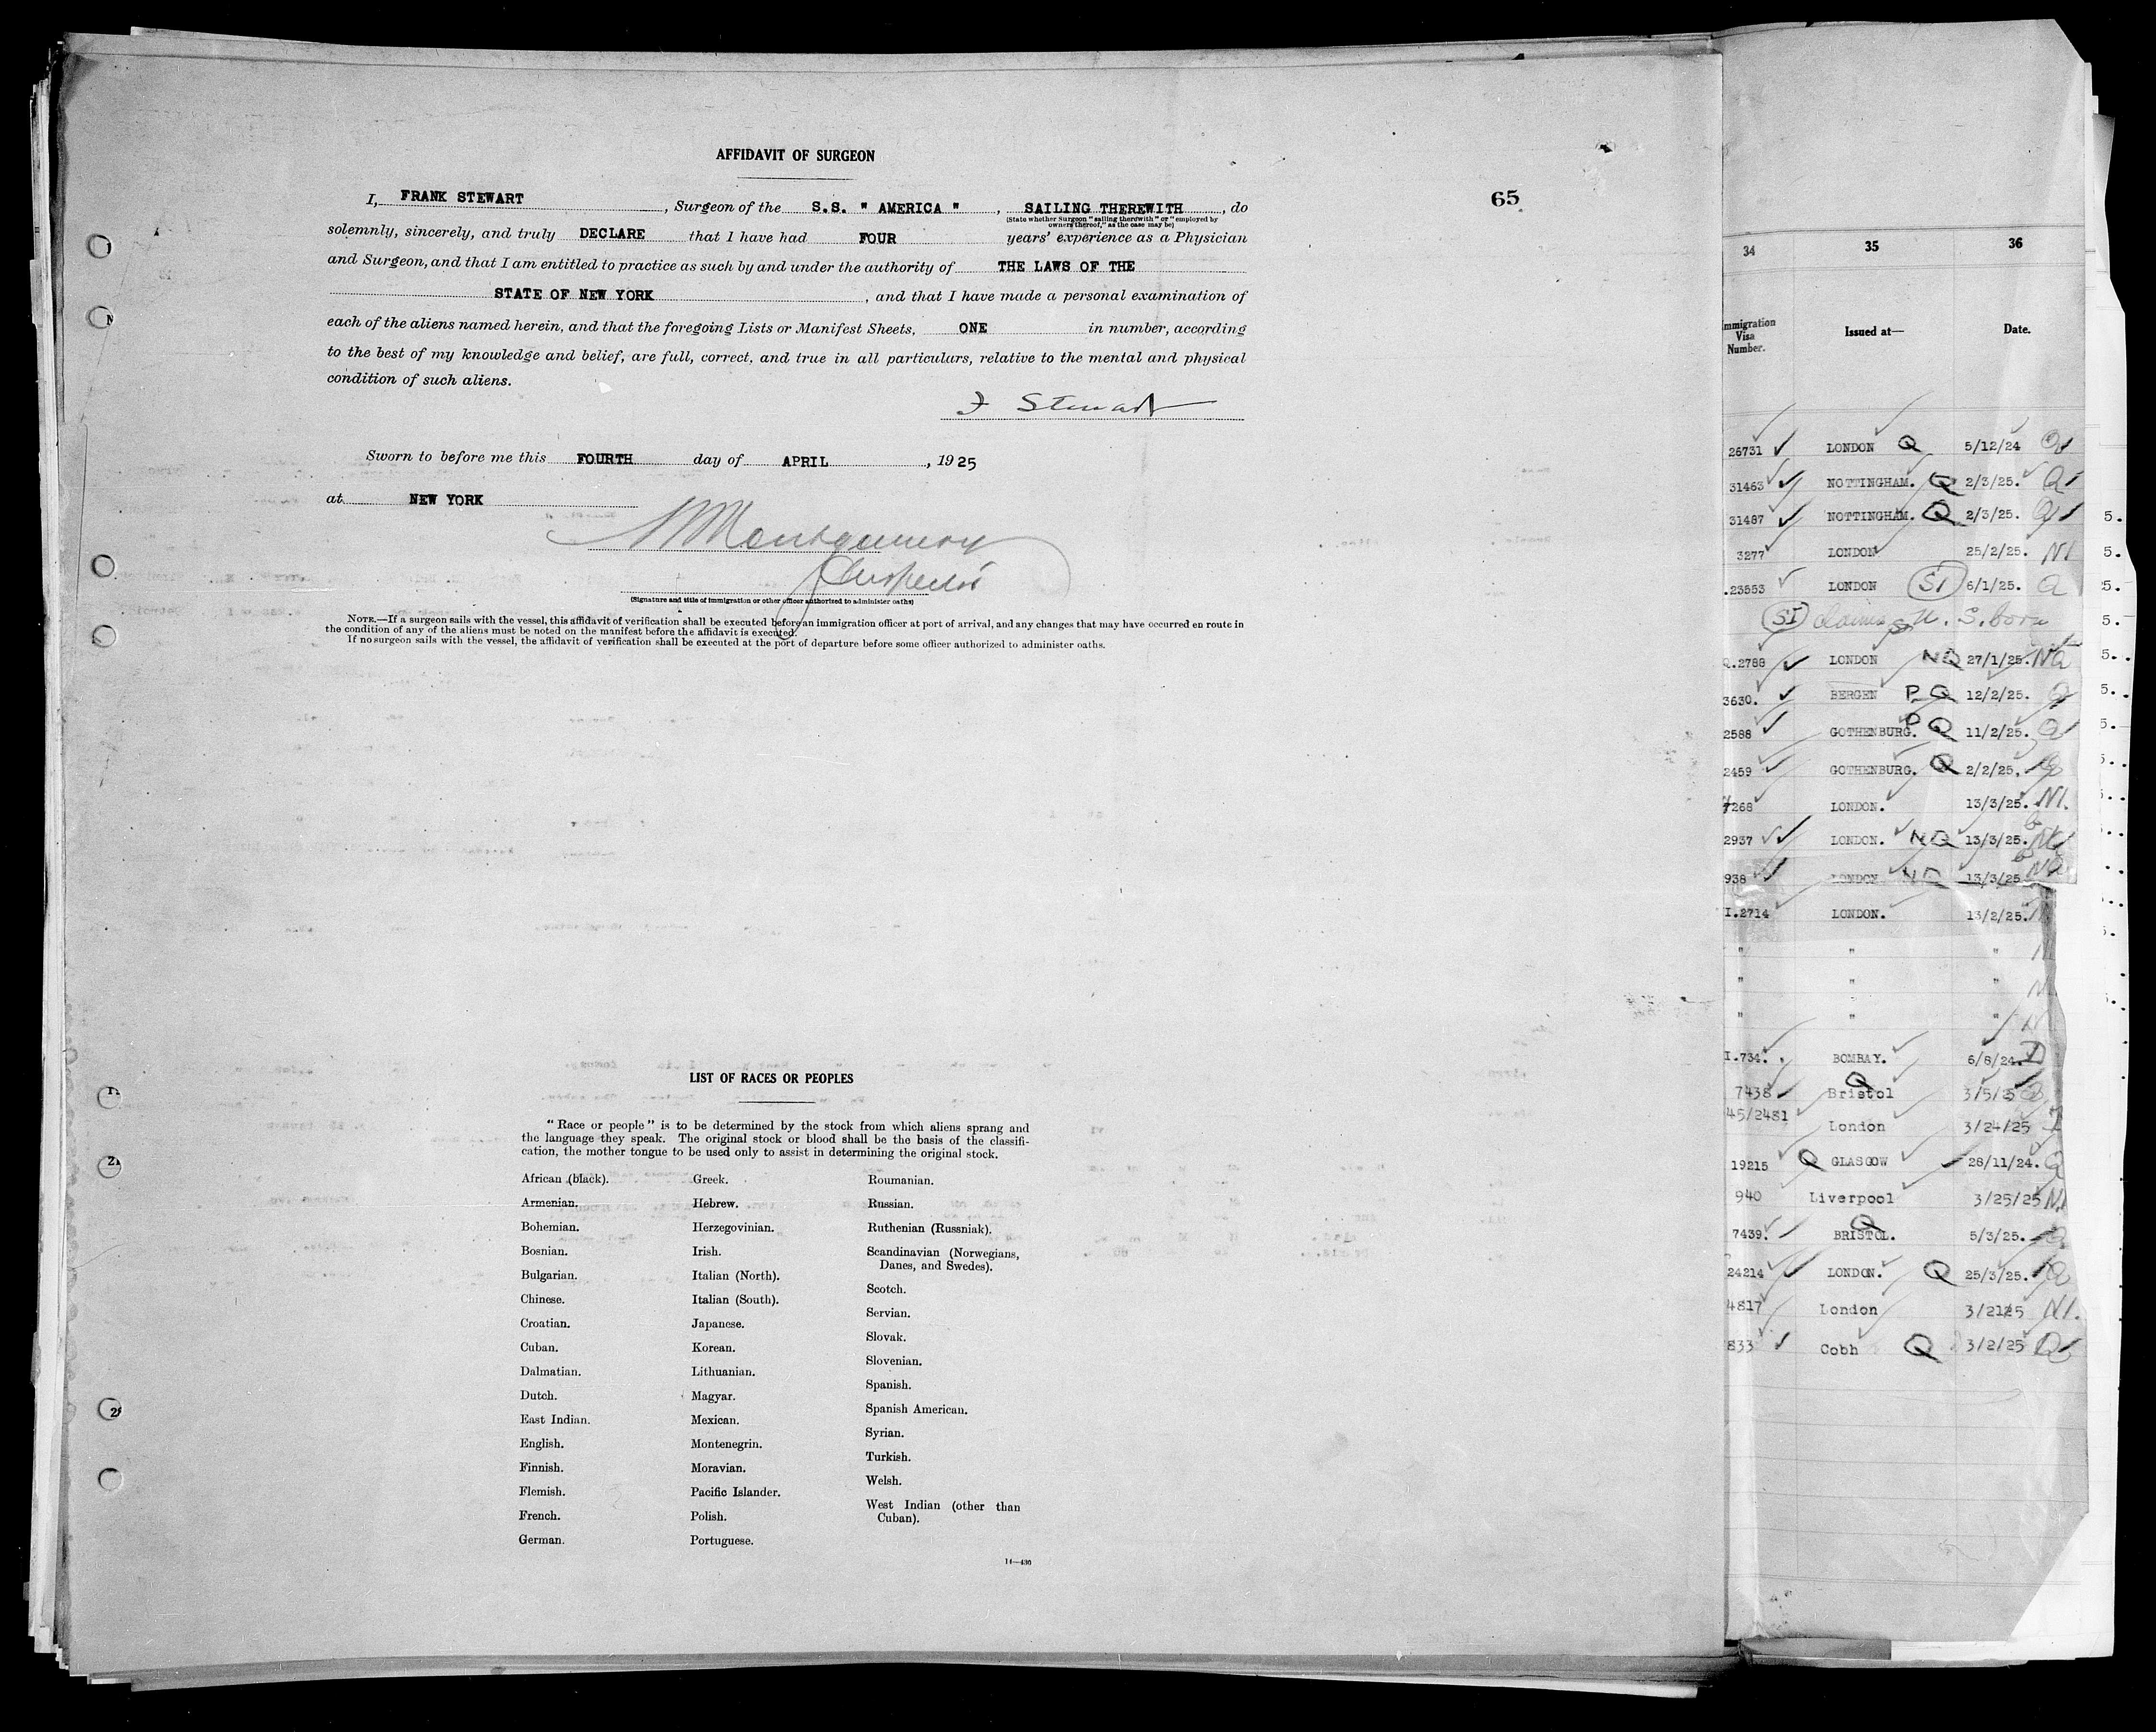 AFFIDAVIT OF SURGEON
65
I, FRANK STEWART, Surgeon of the S.S. " AMERICA ", SAILING THEREWITH, do
(State whether Surgeon "sailing therewith" or "employed by
owners thereof," as the case may be)
solemnly, sincerely, and truly DECLARE that I have had FOUR years' experience as a Physician
and Surgeon, and that I am entitled to practice as such by and under the authority of THE LAWS OF THE
STATE OF NEW YORK, and that I have made a personal examination of
each of the aliens named herein, and that the foregoing Lists or Manifest Sheets, ONE in number, according
to the best of my knowledge and belief, are full, correct, and true in all particulars, relative to the mental and physical
condition of such aliens.
F Stewart
Sworn to before me this FOURTH day of APRIL, 1925
at NEW YORK
Montgomery
Inspector
(Signature and title of immigration or other officer authorized to administer oaths)
NOTE.—If a surgeon sails with the vessel, this affidavit of verification shall be executed before an immigration officer at port of arrival, and any changes that may have occurred en route in
the condition of any of the aliens must be noted on the manifest before the affidavit is executed.
If no surgeon sails with the vessel, the affidavit of verification shall be executed at the port of departure before some officer authorized to administer oaths.
LIST OF RACES OR PEOPLES
"Race or people" is to be determined by the stock from which aliens sprang and
the language they speak. The original stock or blood shall be the basis of the classifi-
cation, the mother tongue to be used only to assist in determining the original stock.
African (black).
Armenian.
Bohemian.
Bosnian.
Bulgarian.
Chinese.
Croatian.
Cuban.
Dalmatian.
Dutch.
East Indian.
English.
Finnish.
Flemish.
French.
German.
Greek.
Hebrew.
Herzegovinian.
Irish.
Italian (North).
Italian (South).
Japanese.
Korean.
Lithuanian.
Magyar.
Mexican.
Montenegrin.
Moravian.
Pacific Islander.
Polish.
Portuguese.
Roumanian.
Russian.
Ruthenian (Russniak).
Scandinavian (Norwegians,
Danes, and Swedes).
Scotch.
Servian.
Slovak.
Slovenian.
Spanish.
Spanish American.
Syrian.
Turkish.
Welsh.
West Indian (other than
Cuban).
14—430
34 35 36
Immigration
Visa
Number.
Issued at—
Date.
26731 LONDON Q 5/12/24 Q
31463 NOTTINGHAM. Q 2/3/25. Q
31487 NOTTINGHAM. Q 2/3/25. Q
3277 LONDON 25/2/25. NI
.23553 LONDON SI 6/1/25. Q
SI claims U. S. born
Q.2788 LONDON NQ 27/1/25. NQ
3630. BERGEN PQ 12/2/25. Q
2588 GOTHENBURG. PQ 11/2/25. Q
2459 GOTHENBURG. Q 2/2/25. Q
7268 LONDON. 13/3/25. NI.
2937 LONDON. NQ 13/3/25.
938 LONDON NQ 13/3/25 NQ
I.2714 LONDON. 13/2/25.
" " "
" " "
" " "
I.734. BOMBAY. 6/8/24.
7438 Bristol Q 3/5/25 Q
45/2481 London 3/24/25
19215 Q GLASGOW 28/11/24. Q
940 Liverpool 3/25/25
7439. BRISTOL. Q 5/3/25. Q
24214 LONDON. Q 25/3/25. Q
4817 London 3/2125 NI.
833 Cobh Q 3/2/25 Q